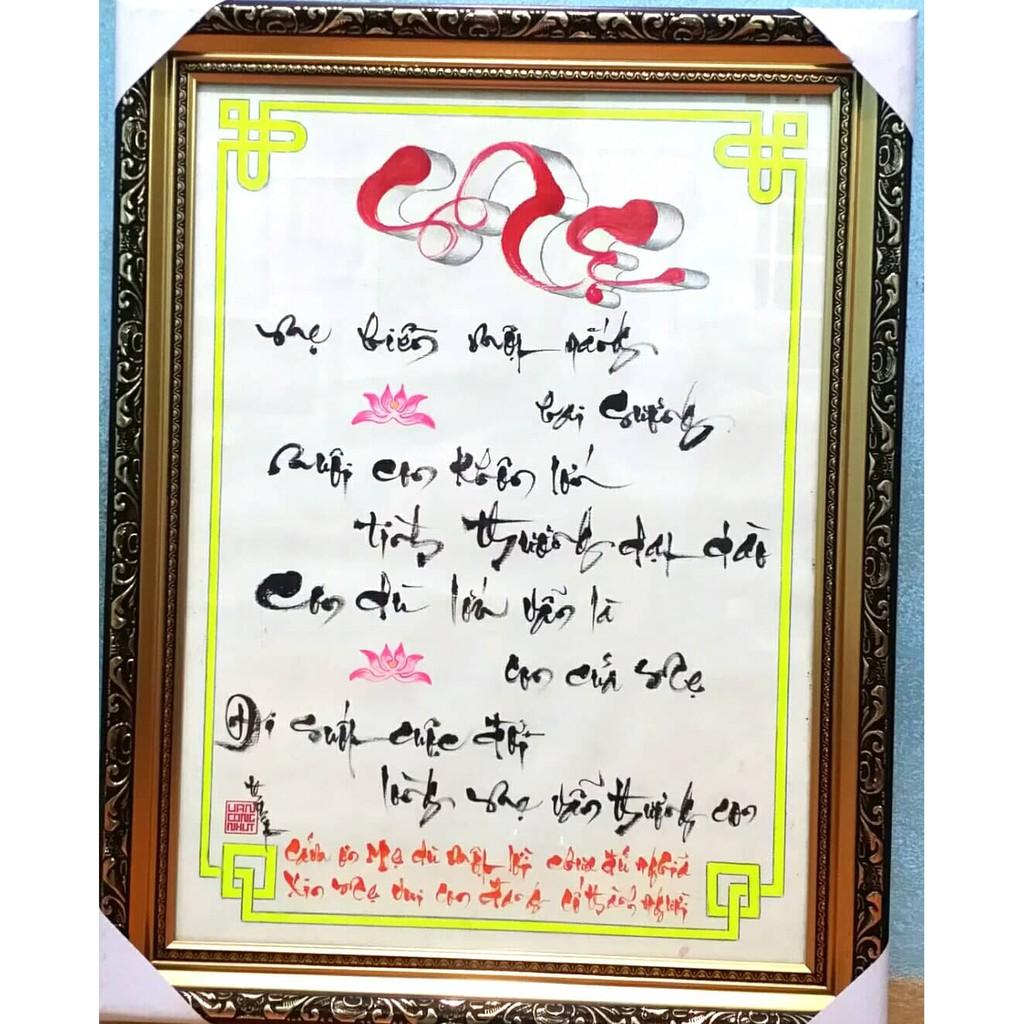 Mẹ
Mẹ hiền một nắng
hai sương
Nuôi con khôn lớn
tình thương dạt dào
Con dù lớn vẫn là
con của Mẹ
Đi suốt cuộc đời
lòng mẹ vẫn thương con
VAN
CONG
NHUT
Cảm ơn Mẹ dù một lời chưa đủ nghĩa
Xin Mẹ vui con đang cố thành người